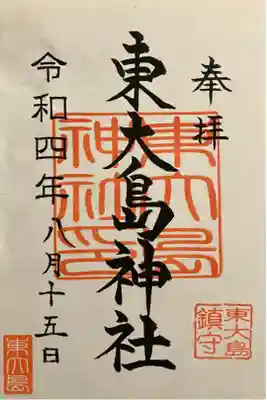 奉拝
東大島神社
令和四年八月十五日
東大島
神社印
東大島
鎮守
東大島